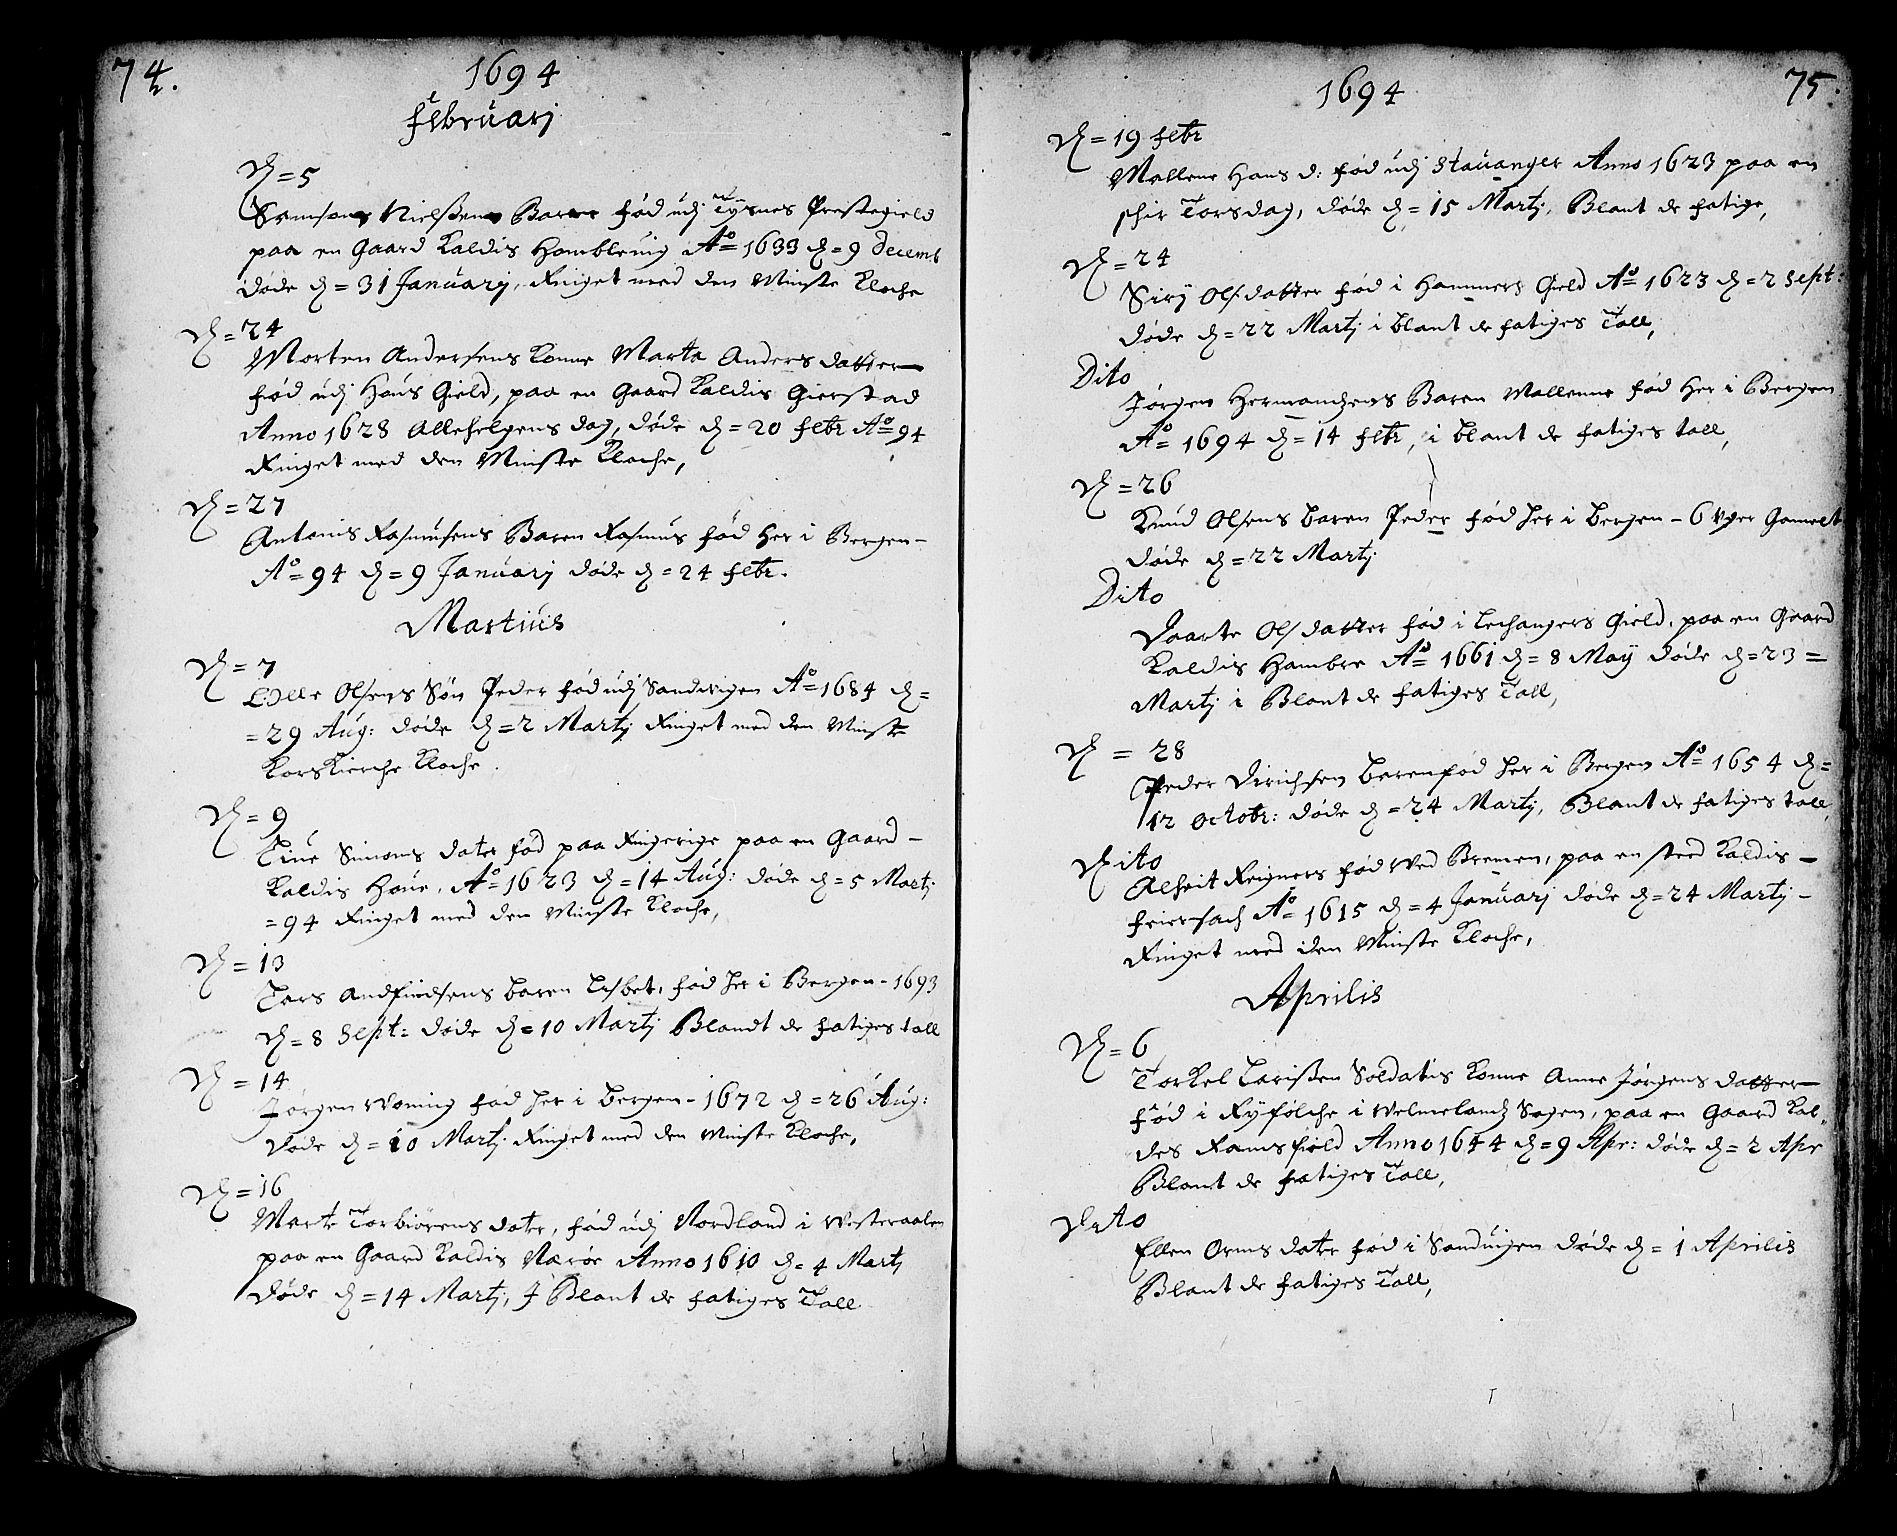 74.
1694
Februarj
D = 5
Samson Nielsens Baren fød udj Tysnes Prestegield
paa en Gaard Kaldis Hambleuig Aº 1633 d = 9 Decemb
døde d = 31 Januarij, Ringet med den Minste Kloche
D = 24
Morten Andersens Konne Marta Anders datter
fød udj Haus Gield, paa en Gaard Kaldis Gierstad
Anno 1628 Allehelgens dag, døde d = 20 Febr Aº 94
Ringet med den Minste Kloche,
D = 27
Antonis Rasmusens Baren Rasmus fød Her i Bergen -
Aº = 94 d = 9 Januarj døde d = 24 Febr.
Martius
D = 7
Olle Olsens Søn Peder fød udj Sandvigen Aº 1684 d =
= 29 Aug: døde d = 2 Martj Ringet med den Minste
Korskierche Kloche.
D = 9
Tine Simons dater fød paa Ringerige paa en Gaard -
Kaldis Houe, Aº = 1623 d = 14 Aug: døde d = 5 Martj
= 94 Ringet med den Minste Kloche,
D = 13
Lars Andfindsens baren Lisbet, fød her i Bergen - 1693
d = 8 Sept: døde d = 10 Martj Blandt de fatiges tall
D = 14
Jørgen Woning fød her i bergen - 1672 d = 26 Aug:
døde d = 10 Martj. Ringet med den Minste Kloche,
D = 16
Marte Torbiørens dater, fød udj Nordland i Westeraalen
paa en Gaard Kaldis Nærøe Anno 1610 d = 4 Martj
døde d = 14 Martj, J Blant de fatiges Tall
1694
75.
D = 19 Febr
Mallene Hans d: fød udj Stauanger Anno 1623 paa en
schir Torsdag, døde d = 15 Martj, Blant de fatige,
D = 24
Sirj Ols datter fød i Hammers Gield Aº 1623 d = 2 Sept:
døde d = 22 Martj i blant de fatiges Tall,
Dito
Jørgen Hermandzens Baren Mallenne fød Her i Bergen
Aº = 1694 d = 14 Febr, i blant de fatiges tall,
D = 26
Knud Olsens baren Peder fød her i bergen - 6 uger Gamelt
døde d = 22 Martj
Dito
Daarte Ols datter fød i Lechangers Gield, paa en Gaard
Kaldis Hambre Aº = 1661 d = 8 Maÿ døde d = 23 =
Martj i Blant de fatiges Tall,
D = 28
Peder Dirichsen baren fød her i Bergen Aº = 1654 d =
12 Octobr: døde d = 24 Martj, Blant de fatiges tall,
Dito
Alheit Reigners fød Wed Bremen, paa en sted Kaldis -
Feiersach Aº = 1615 d = 4 Januarj døde d = 24 Martj -
Ringet med den Minste Kloche,
Aprilis
D = 6
Torkel Larissen Soldatis Konne Anne Jørgens datter
fød i Ryfølche i Welmelandz Sogen, paa en Gaard Kal
des Ramsfield Anno 1644 d = 9 Apr: døde d = 2 Apr
Blant de fatiges Tall,
Dito
Ellen Orms dater fød i Sanduigen døde d = 1 Aprilis
Blant de fatiges Tall,